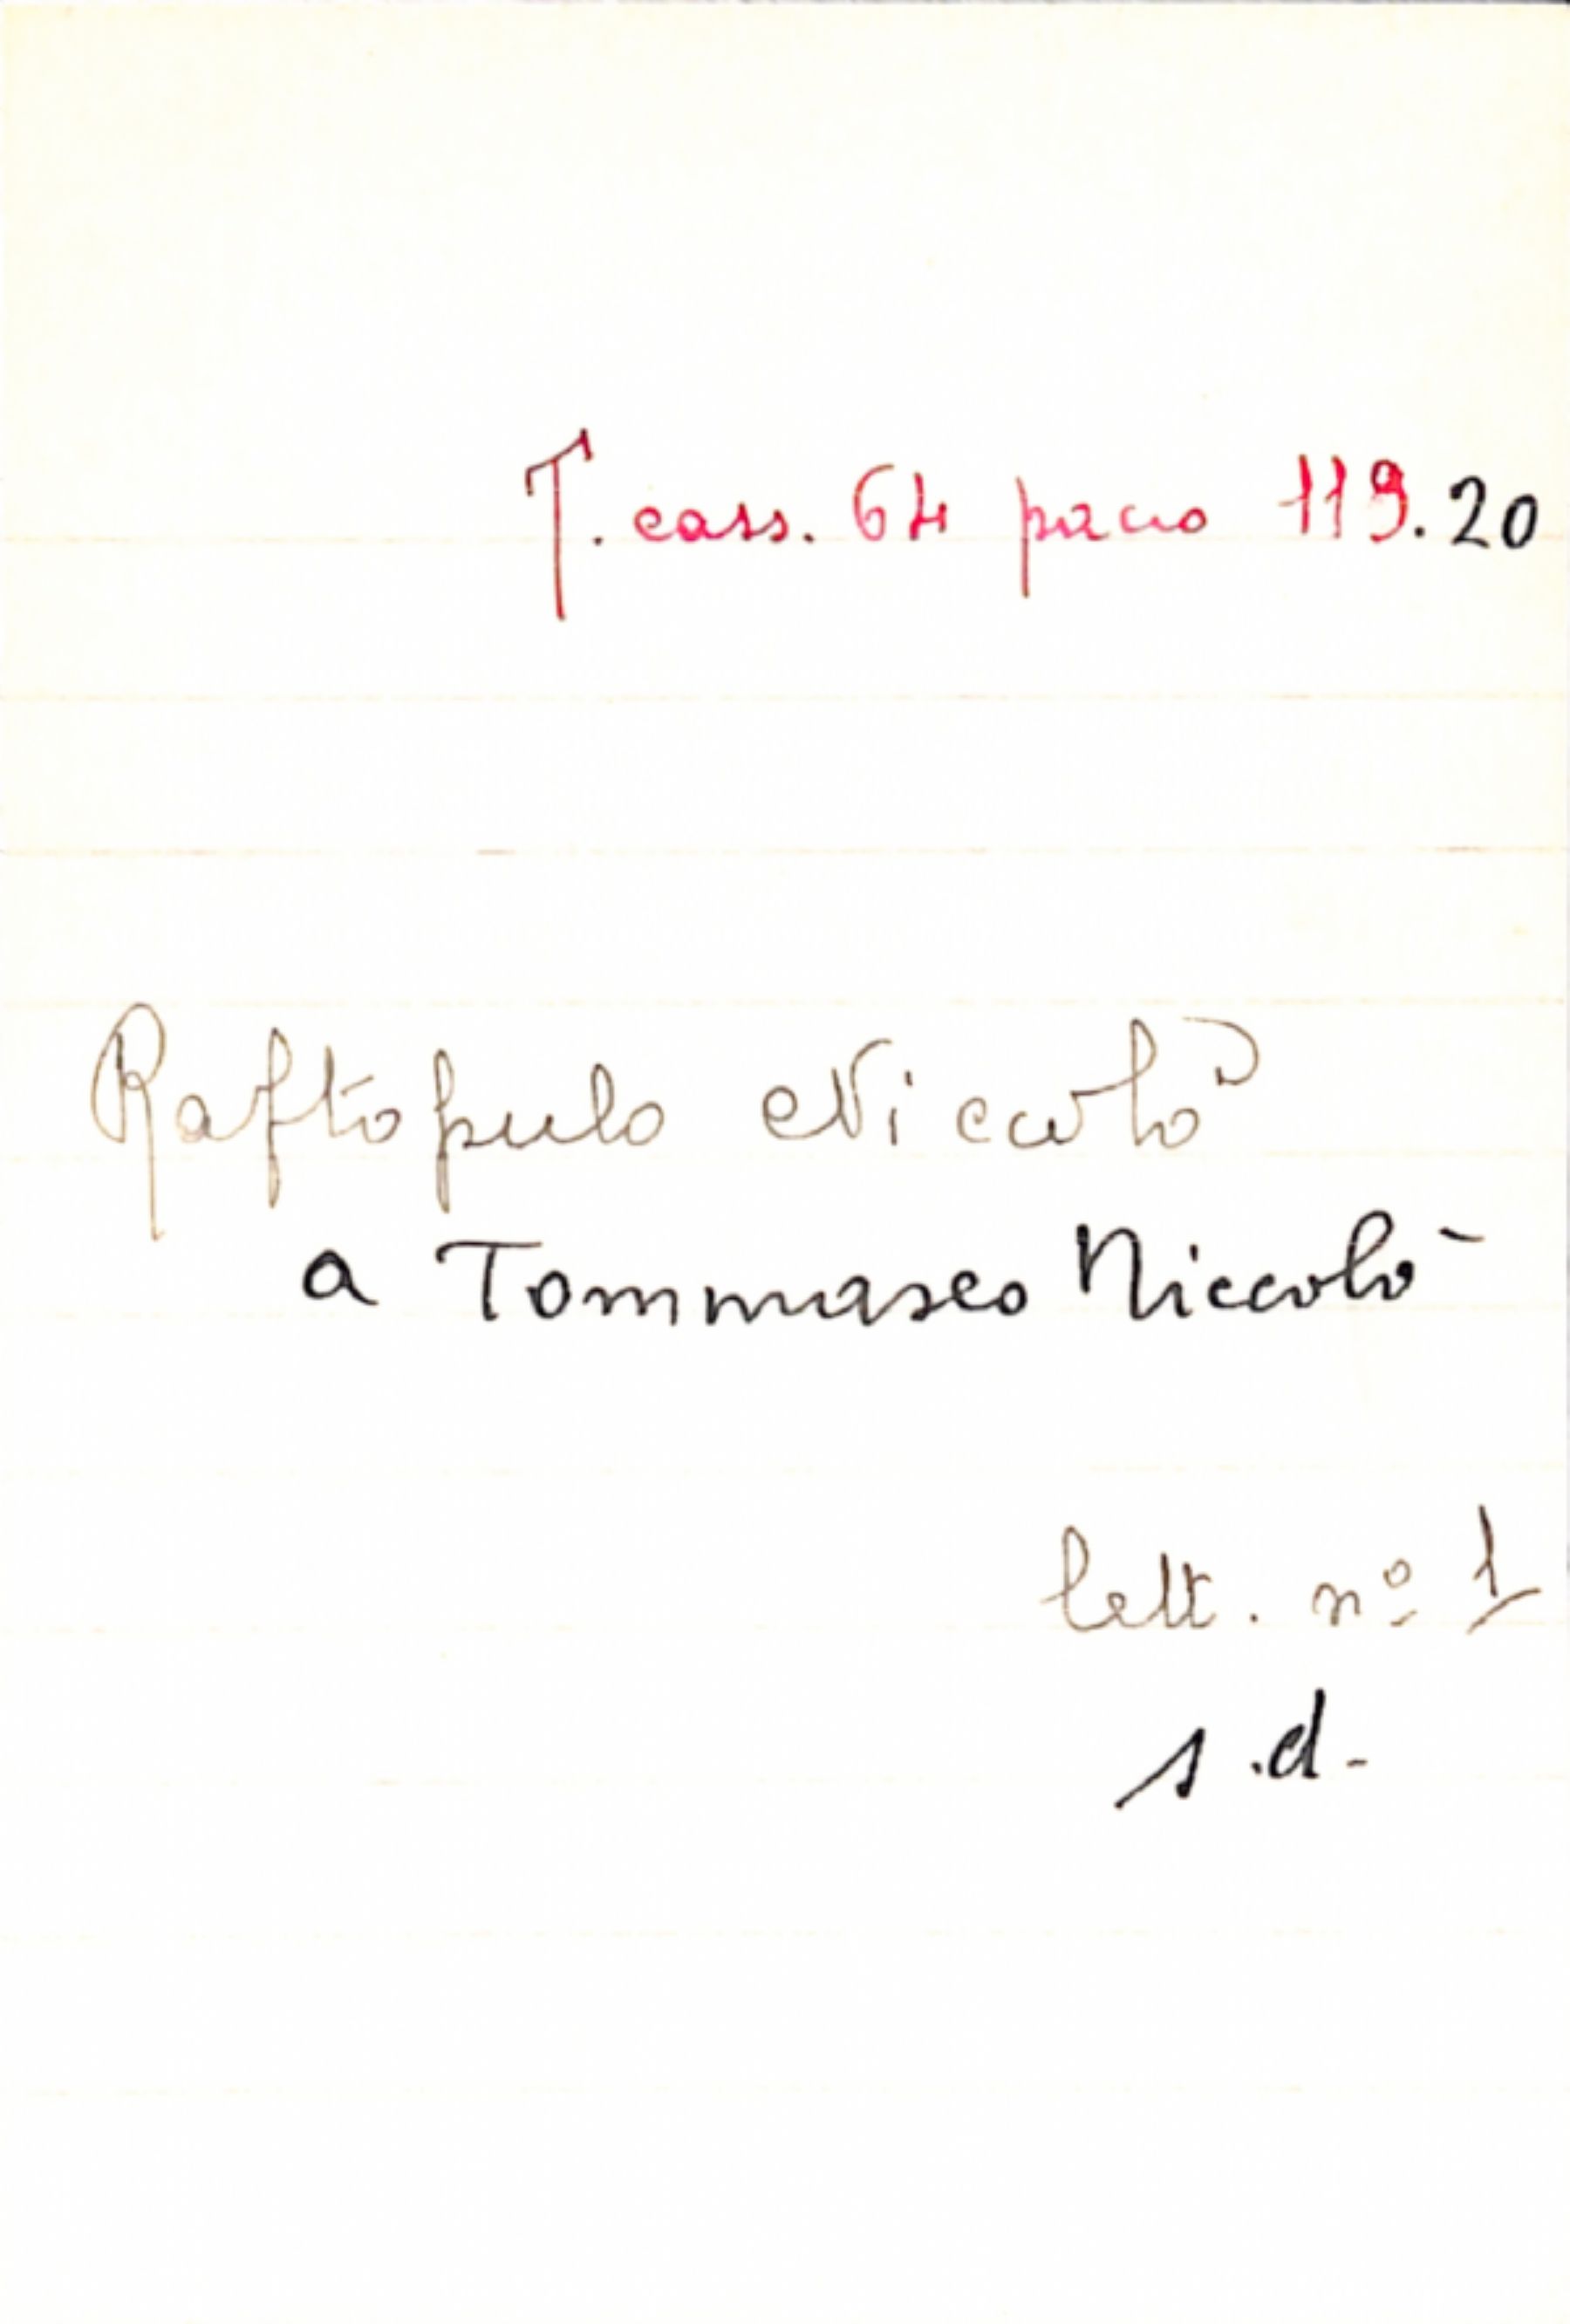 T. cass. 64 pacco 119.20
Raftopulo Niccolò
a Tommaseo Niccolò
lett. nº 1
s.d.